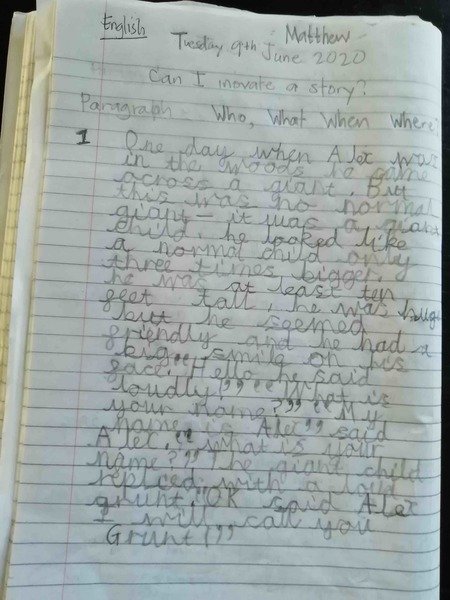 English
Matthew
Tuesday 9th June 2020
Can I inovate a story?
Paragraph Who, What When Where?
1 One day when Alex was
in the woods he came
across a giant. But
this was no normal
giant – it was a giant
child. he looked like
a normal child only
three times bigger.
he was at least ten
feet tall. he was huge
but he seemed
friendly and he had a
big smile on his
face. "Hello he said
loudly?" "What is
your name?" "My
name is Alex" said
Alex. "What is your
name?" The giant child
replied with a loud
grunt. "OK said Alex
I will call you
Grunt!"